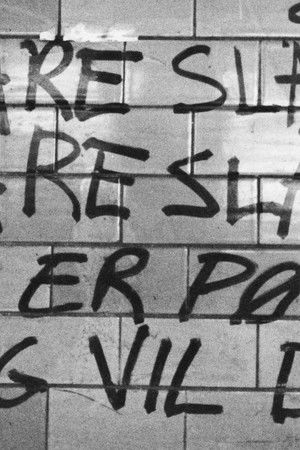 ARE SLA
ARE SLA
ER PØ
G VIL D